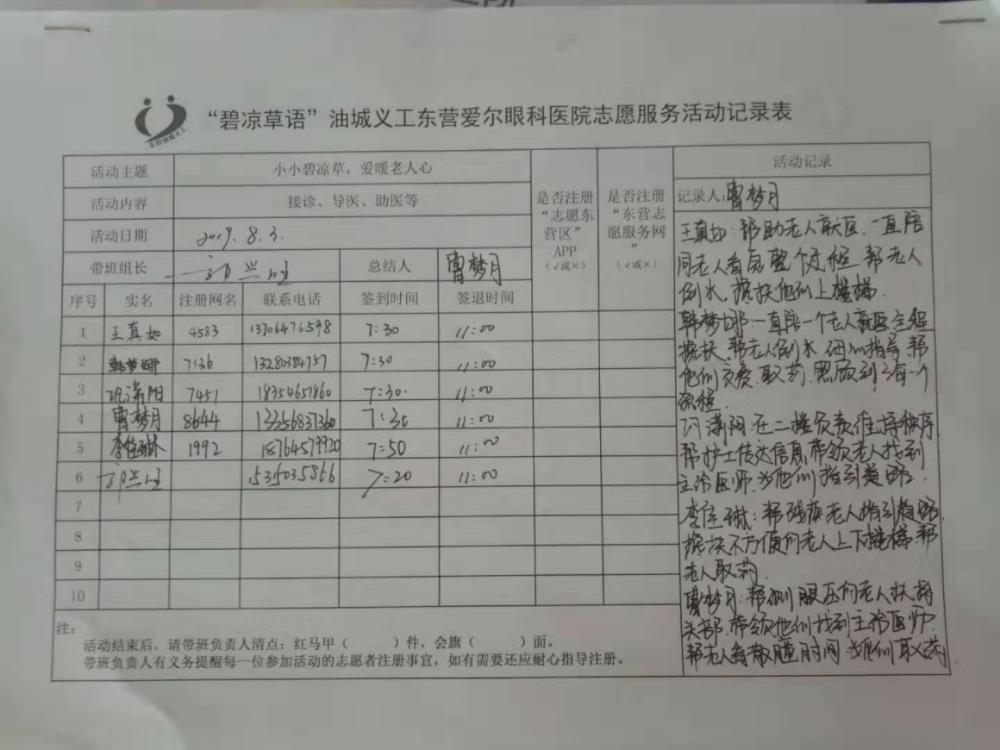 “碧凉草语”油城义工东营爱尔眼科医院志愿服务活动记录表
活动主题 小小碧凉草，爱暖老人心 是否注册“志愿东营区”APP（√或×） 是否注册“东营志愿服务网”（√或×） 活动记录
活动内容 接诊、导医、助医等
活动日期 2019.8.3.
带班组长 总结人 曹梦月
记录人:曹梦月
序号 实名 注册网名 联系电话 签到时间 签退时间
1 王真如 4583 13706476598 7:30 11:00
2 韩梦娜 7136 13280384757 7:30 11:00
3 7451 18354657860 7:30 11:00
4 曹梦月 8644 13356837360 7:30 11:00
5 李佳琳 1992 18764579920 7:50 11:00
6 7:20 11:00
7
8
9
10
王真如:帮助老人就医,一直陪
同老人看完整个过程,帮老人
倒水,搀扶他们上楼梯.
韩梦娜:一直陪一个老人就医全程
搀扶,帮老人倒水,细心指导,帮
他们交费,取药,照顾到每一个
流程.
潇阳:在二楼负责维持秩序,
帮护士传达信息,带领老人找到
主治医师,为他们指引道路.
李佳琳:帮残疾老人指引道路,
搀扶不方便的老人上下楼梯,帮
老人取药.
曹梦月:帮测眼压的老人扶持
头部,带领他们找到主治医师,
帮老人看散瞳时间,为他们取药
注:
活动结束后，请带班负责人清点：红马甲（ ）件，会旗（ ）面。
带班负责人有义务提醒每一位参加活动的志愿者注册事宜，如有需要还应耐心指导注册。